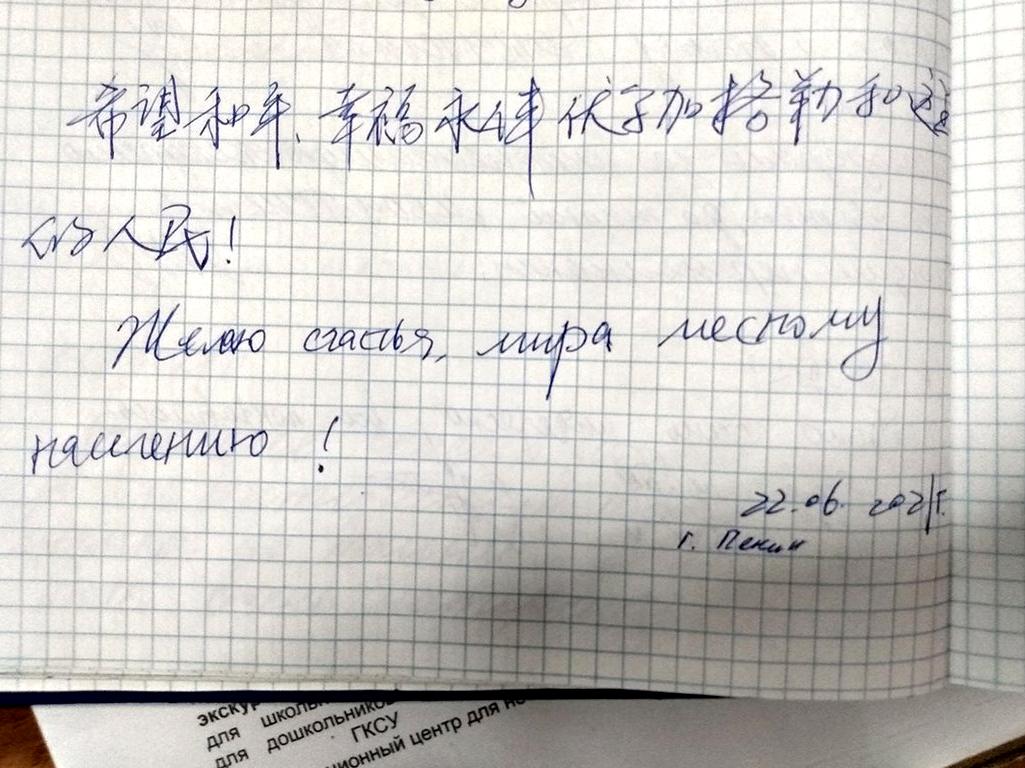 希望和平、幸福永伴伏尔加格勒和这
的人民!
Желаю счастья, мира месному
населению !
22.06. 2021г.
г. Пекин
для школь
для дошкольников
ГКСУ
ционный центр для не